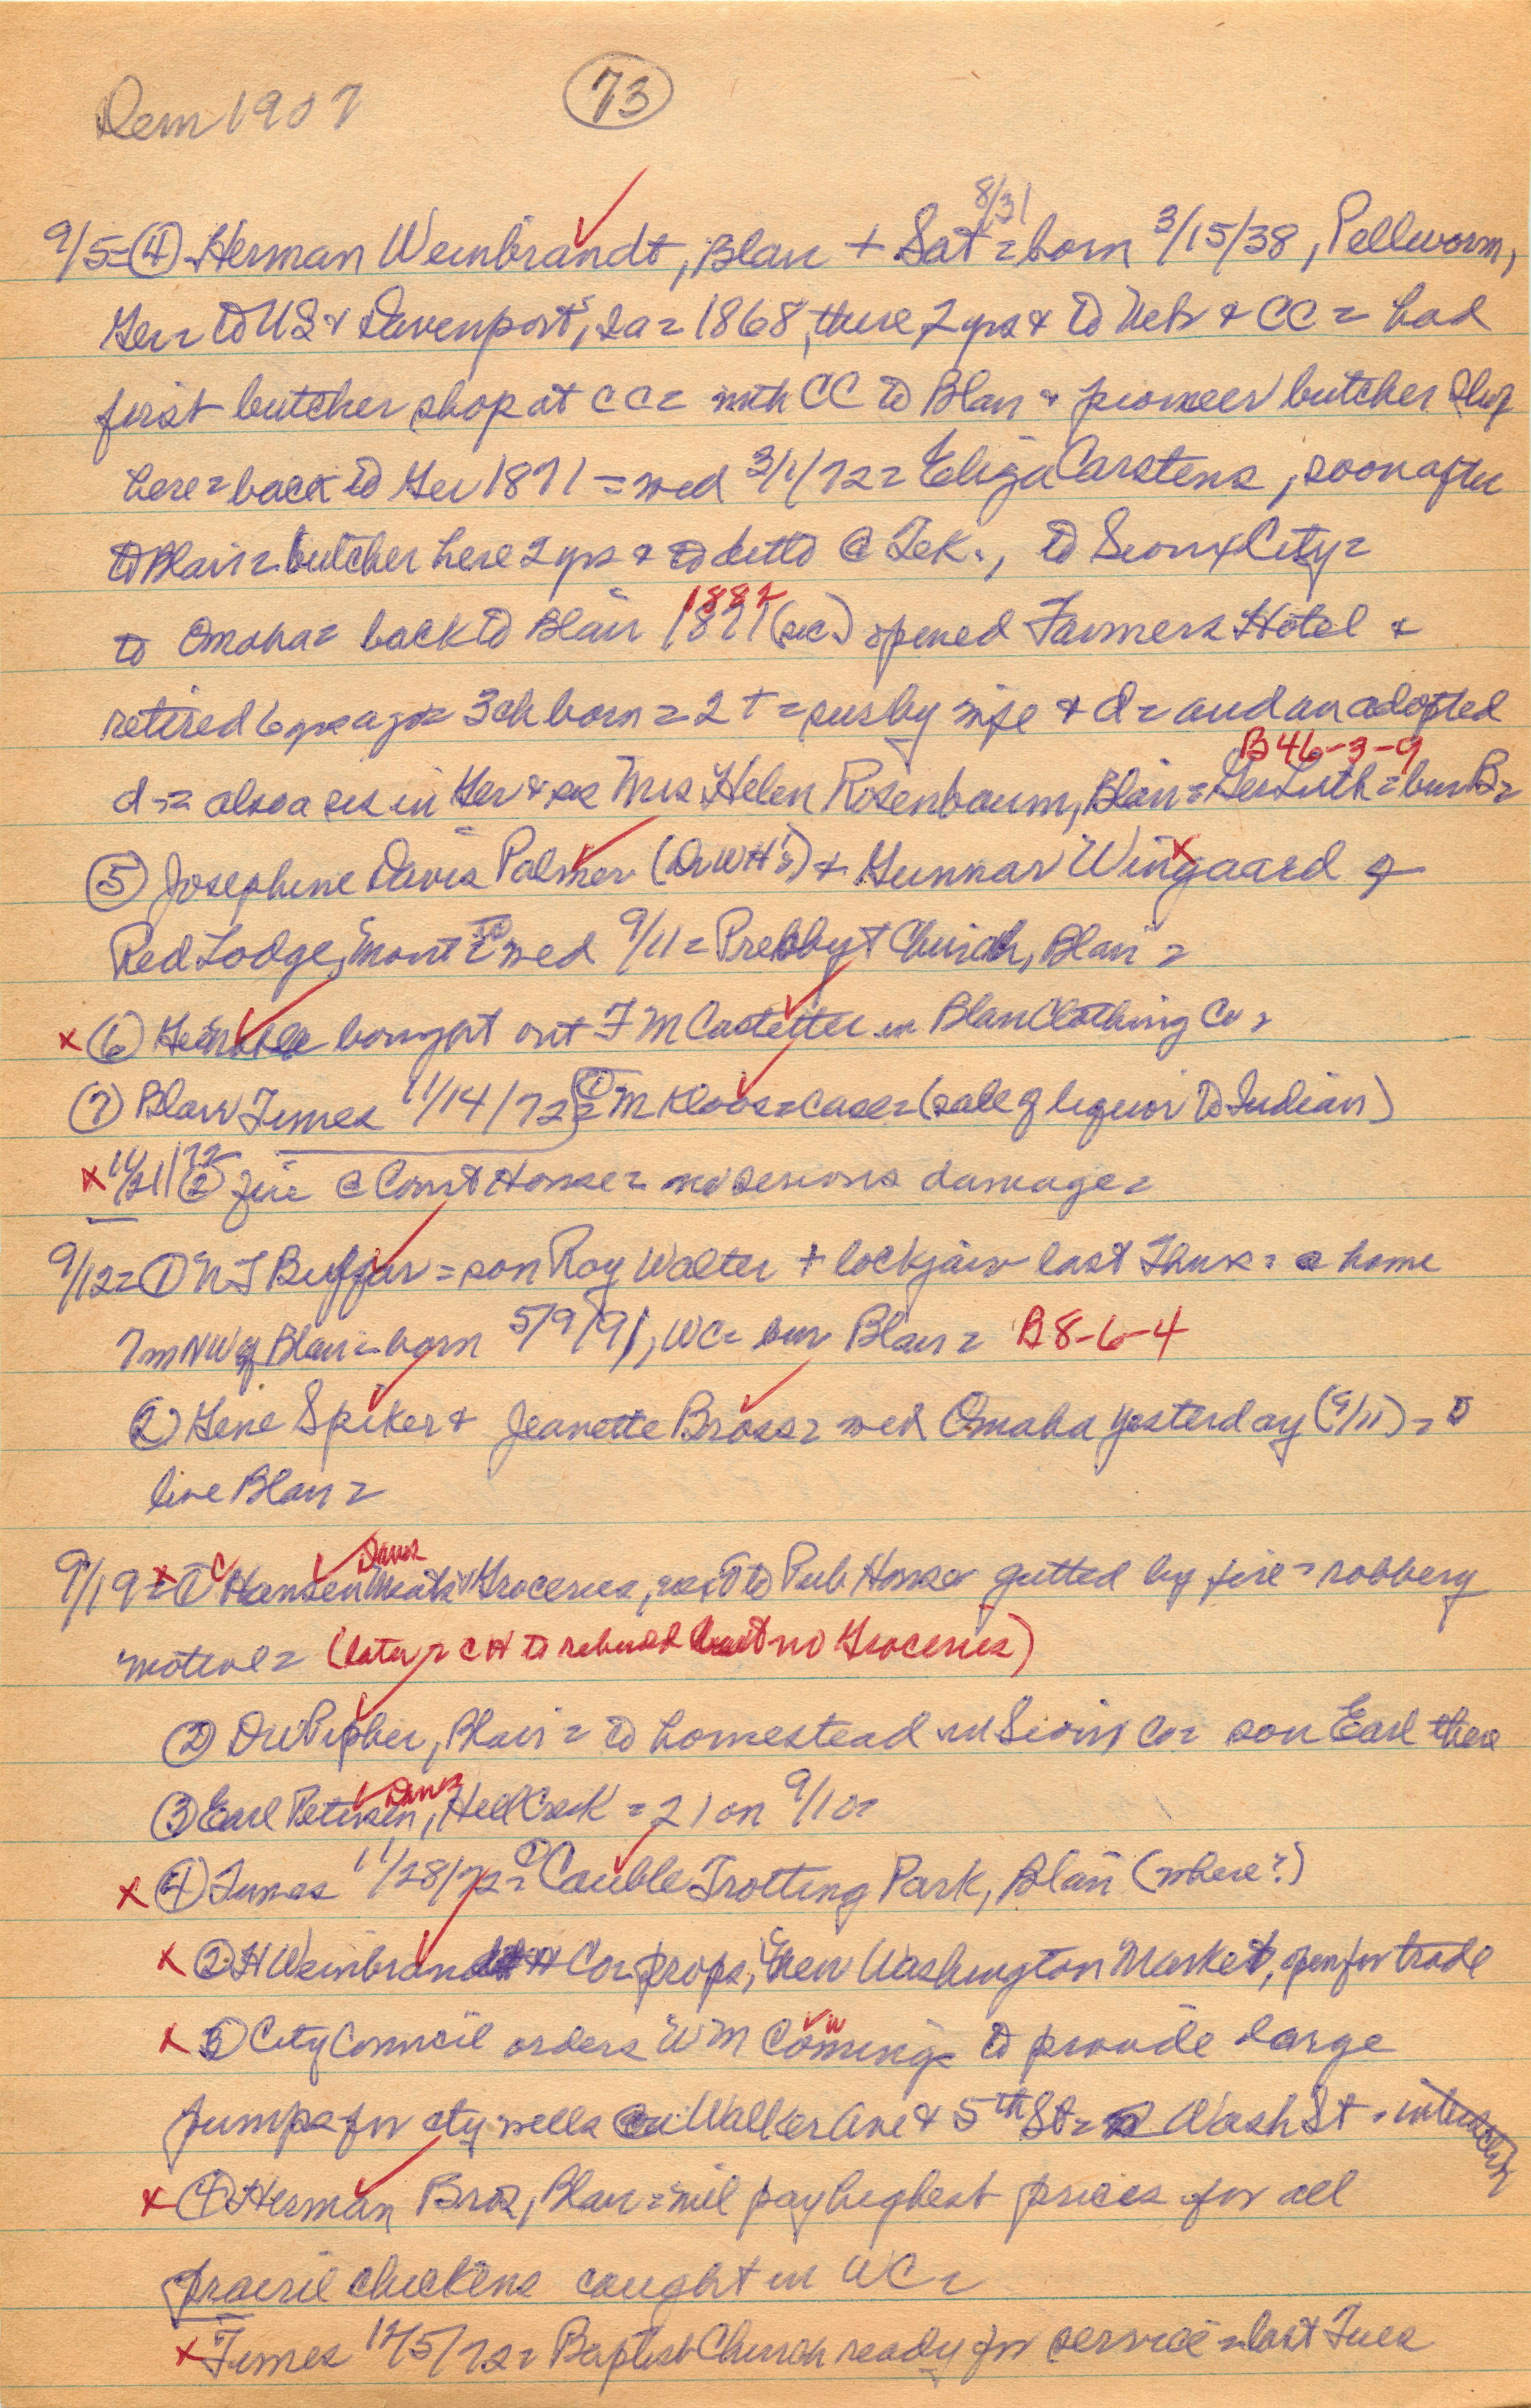 Dem 1907
73
8/31
9/5= ④ Herman Weinbrandt, Blair + Sat = born 3/15/38, Pellworm,
Ger = to US & Davenport, Ia = 1868, there 2 yrs & to Neb & CC = had
first butcher shop at CC = with CC to Blair & pioneer butcher shop
here = back to Ger 1871 = wed 3/1/72 = Eliza Carstens, soon after
to Blair = butcher here 2 yrs & to ditto @ Tek., to Sioux City =
1882
to Omaha = back to Blair 1871 (sic) opened Farmers Hotel &
retired 6 yrs ago = 3 ch born = 2 + = sur by wife & d = and an adopted
B 46-3-9
d = also a sis in Ger & sis Mrs Helen Rosenbaum, Blair = Ger Luth = bur B =
⑤ Josephine Davis Palmer (Dr WH's) & Gunnar Wingaard of
Red Lodge, Mont = to wed 9/11 = Presbyt Church, Blair =
x ⑥ bought out F M Castetter in Blair Clothing Co =
⑦ Blair Times 11/14/72 = ① M Kloos = case = (sale of liquor to Indian)
x 11/21/72 ② fire @ Court House = no serious damage =
9/12 = ① N J Buffur = son Roy Walter + lockjaw last Thurs = @ home
7 m NW of Blair = born 5/9/91, WC = bur Blair = B 8-6-4
② Gene Spiker & Jeanette Bross = wed Omaha yesterday (9/11) = to
live Blair =
Danes
9/19 = x ① C Hansen Meats & Groceries, next to Pub House gutted by fire = robbery
motive = (later = CH to rebuild but no Groceries)
② Dr Pipher, Blair = to homestead in Sioux Co = son Earl there
Danes
③ Earl Petersen, Hell Creek = 21 on 9/10 =
x ④ Times 11/28/72 = ① Cauble Trotting Park, Blair (where?)
x ② H Weinbrandt & Co = props, "New Washington Market, open for trade
x ③ City Council orders W M Comings to provide large
pumps for city wells on Walker Ave & 5th St = @ Wash St. intersect
x ④ Herman Bros, Blair = will pay highest prices for all
prairie chickens caught in WC =
x Times 12/5/72 = Baptist Church ready for service = last Tues